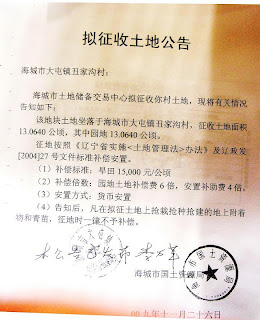 拟征收土地公告
海城市大屯镇丑家沟村：
海城市土地储备交易中心拟征收你村土地，现将有关情况
告知如下：
该地块土地坐落于海城市大屯镇丑家沟村，征收土地面积
13.0640 公顷，其中园地 13.0640 公顷。
征地按照《辽宁省实施<土地管理法>办法》及辽政发
[2004]27 号文件标准补偿安置。
（1）补偿标准：旱田 15,000 元/公顷
（2）补偿倍数：园地土地补偿费 6 倍，安置补助费 4 倍。
（3）安置方式：货币安置
（4）告知后，凡在拟征土地上抢栽抢种抢建的地上附着
物和青苗，征地时一律不予补偿。
海城市国土资源局
00九年十一月二十六日